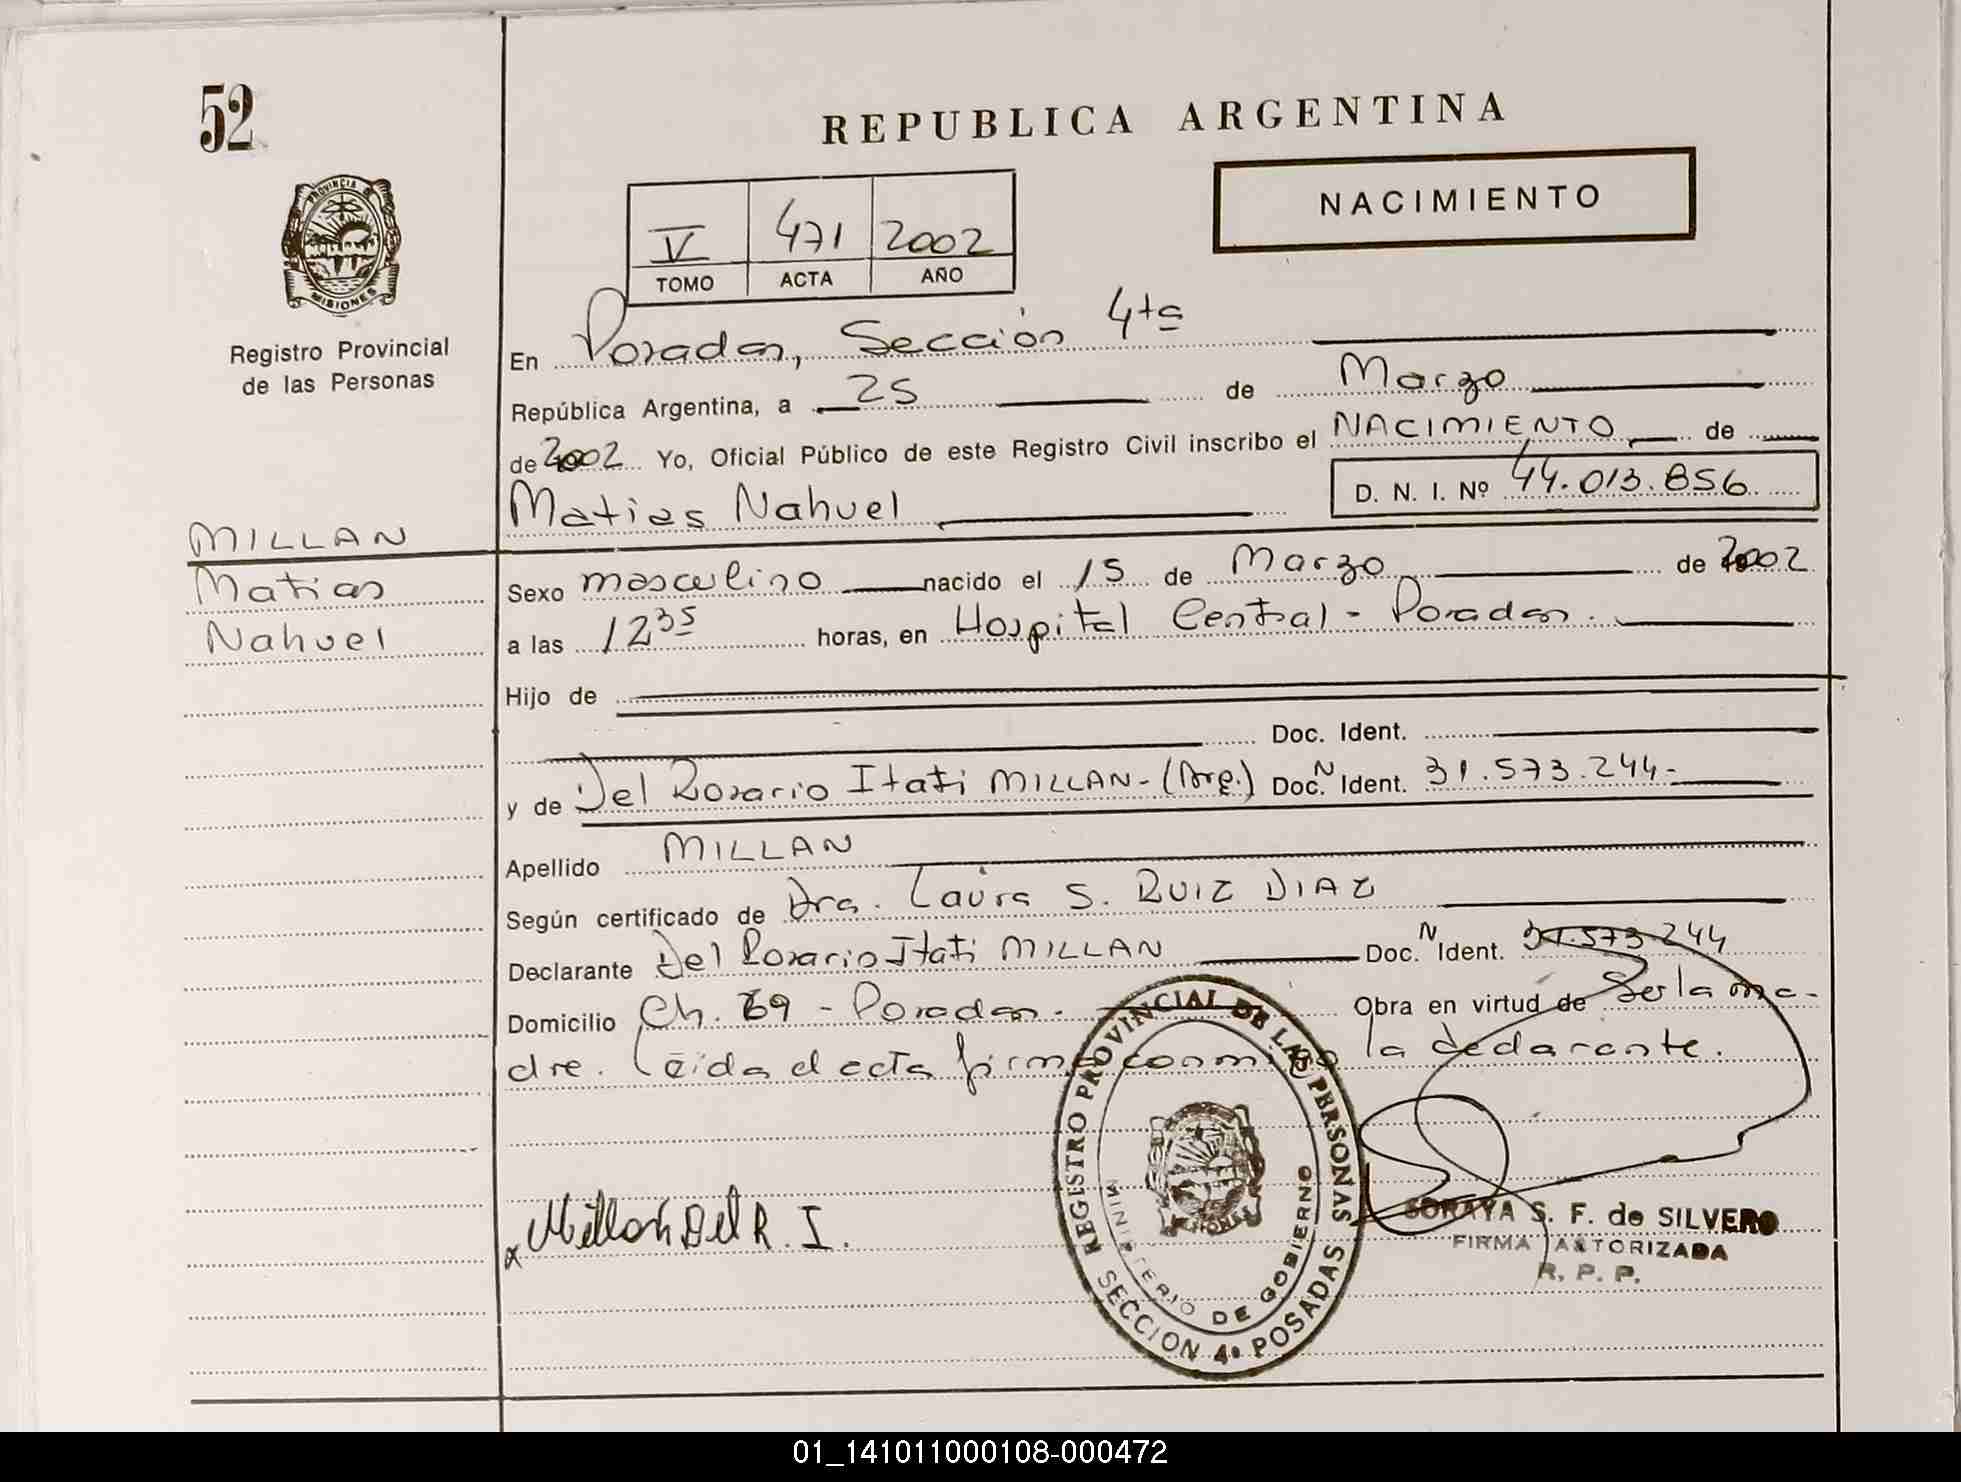 52
REPUBLICA ARGENTINA
NACIMIENTO
V 471 2002
TOMO ACTA AÑO
PROVINCIA DE
MISIONES
Registro Provincial
de las Personas
En Posadas, Sección 4ta
República Argentina, a 25 de Marzo
de 2002 Yo, Oficial Público de este Registro Civil inscribo el NACIMIENTO de
D. N. I. Nº 44.013.856
Matias Nahuel
MILLAN
Matias
Nahuel
Sexo masculino nacido el 15 de Marzo de 2002
a las 12 35 horas, en Hospital Central - Posadas.
Hijo de
Doc. Ident.
y de Del Rosario Itati MILLAN - (Arg.) Doc. N Ident. 31.573.244-
Apellido MILLAN
Según certificado de Dra. Laura S. RUIZ DIAZ
Declarante Del Rosario Itati MILLAN Doc. N Ident. 31.573.244
Domicilio Ch. 69 - Posadas. Obra en virtud de Ser la ma-
dre. Leida el acta firma conmigo la declarante.
x Millan Del R. I.
REGISTRO PROVINCIAL DE LAS PERSONAS
MINISTERIO DE GOBIERNO
SECCION 4ª POSADAS
SORAYA S. F. de SILVERO
FIRMA AUTORIZADA
R. P. P.
01_141011000108-000472